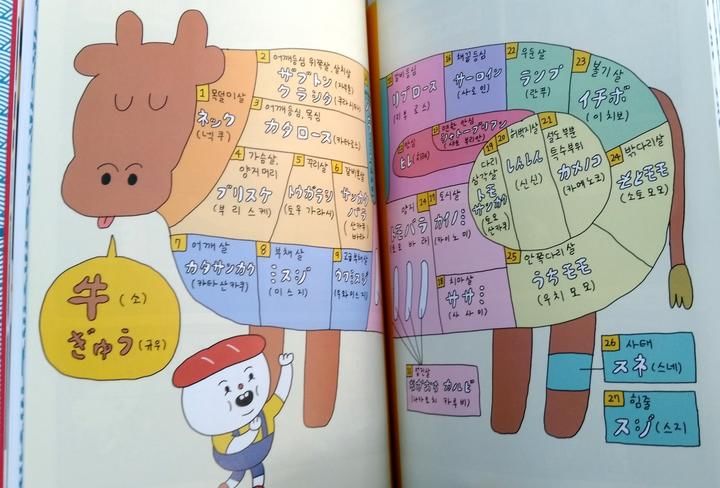 1 목덜미살
ネック
(넥쿠)
2 어깨등심 위쪽살, 살치살
ザブトン (자부톤)
クラシタ (쿠라시타)
3 어깨등심, 목심
カタロース (카타로스)
4 가슴살,
양지머리
ブリスケ
(부리스케)
5 꾸리살
トウガラシ
(토우가라시)
6
サンカク
バラ
(산카쿠
바라)
7 어깨살
カタサンカク
(카타산카쿠)
8 부채살
ミスジ
(미스지)
9
ウワミスジ
(우와미스지)
牛 (소)
ぎゅう (규우)
갈비등심
リブロース
(리부로스)
16 채끝등심
サーロイン
(사로인)
22 우둔살
ランプ
(란푸)
23 볼기살
イチボ
(이치보)
シャトーブリアン
안심
ヒレ (히레)
19 다리
삼각살
トモ
サンカク
(토모
산카쿠)
20 허벅지살
シンシン
(신신)
21 설도 부분
특수부위
カメノコ
(카메노코)
24 밖다리살
そとモモ
(소토모모)
양지
トモバラ
(토모바라)
도시살
カイノミ
(카이노미)
18 치마살
ササミ
(사사미)
25 안쪽다리살
うちモモ
(우치모모)
갈빗살
なかおち カルビ
(나카오치 카루비)
26 사태
スネ (스네)
27 힘줄
スジ (스지